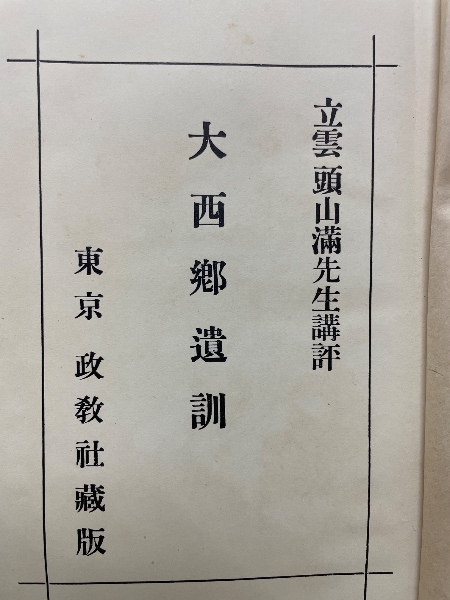 立雲頭山滿先生講評
大西鄕遺訓
東京 政敎社藏版